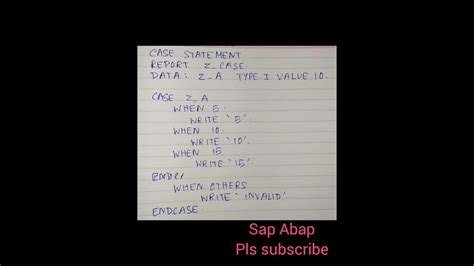 CASE STATEMENT
REPORT Z_CASE.
DATA: Z_A TYPE I VALUE 10.
CASE Z_A
WHEN 5.
WRITE '5'.
WHEN 10.
WRITE '10'.
WHEN 15
WRITE '15'
WHEN OTHERS
WRITE 'INVALID'
ENDCASE.
Sap Abap
Pls subscribe